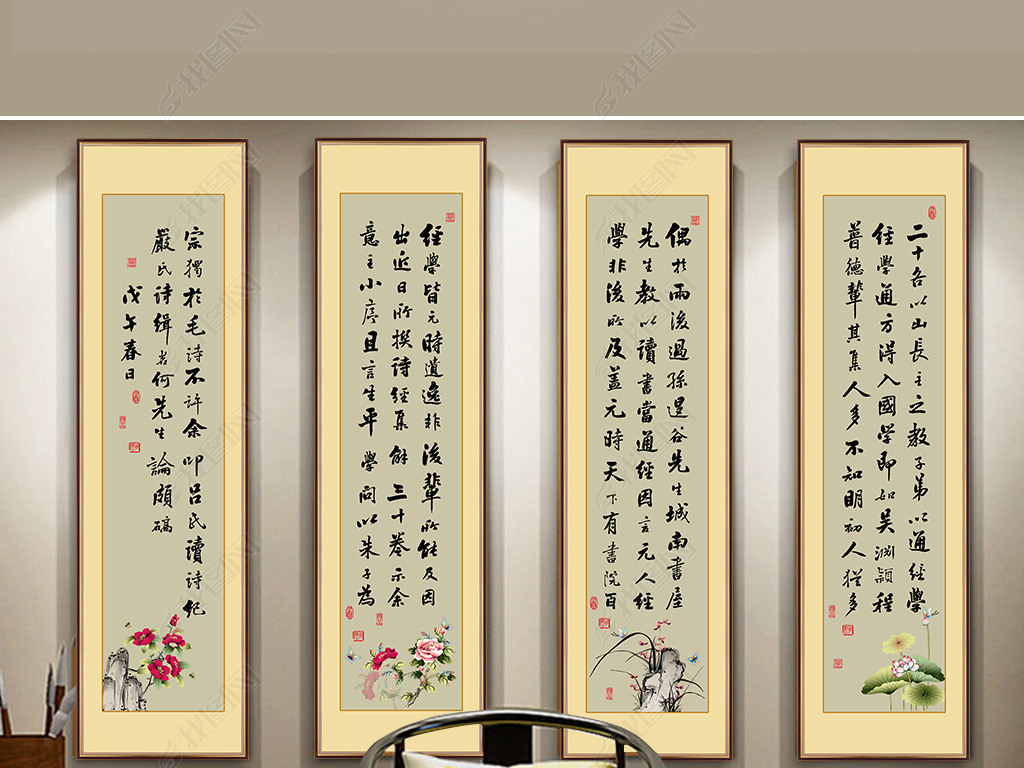 二十各以山長主之教子弟以通經學
經學通方得入國學即如吳淵穎程
普德輩其集人多不知明初人猶多
偶於雨後過孫退谷先生城南書屋
先生教以讀書當通經因言元人經
學非後所及蓋元時天下有書院百
經學皆元時遺逸非後輩所能及因
出近日所撰詩經集解三十卷示余
意主小序且言生平學問以朱子為
宗獨於毛詩不許余叩呂氏讀詩紀
嚴氏詩缉若何先生論頗確
戊午春日
我图网